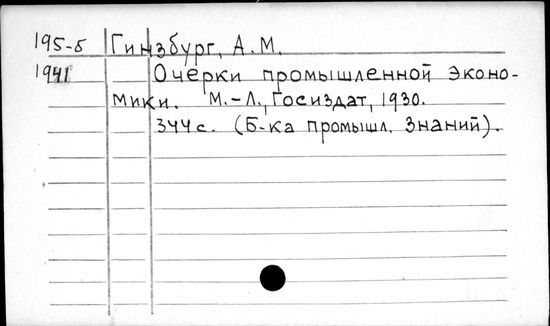 195-б Гинзбург, А.М.
1941 Очерки промышленной эконо-
мики. М.-Л., Госиздат, 1930.
344 с. (Б-ка промышл. знаний).